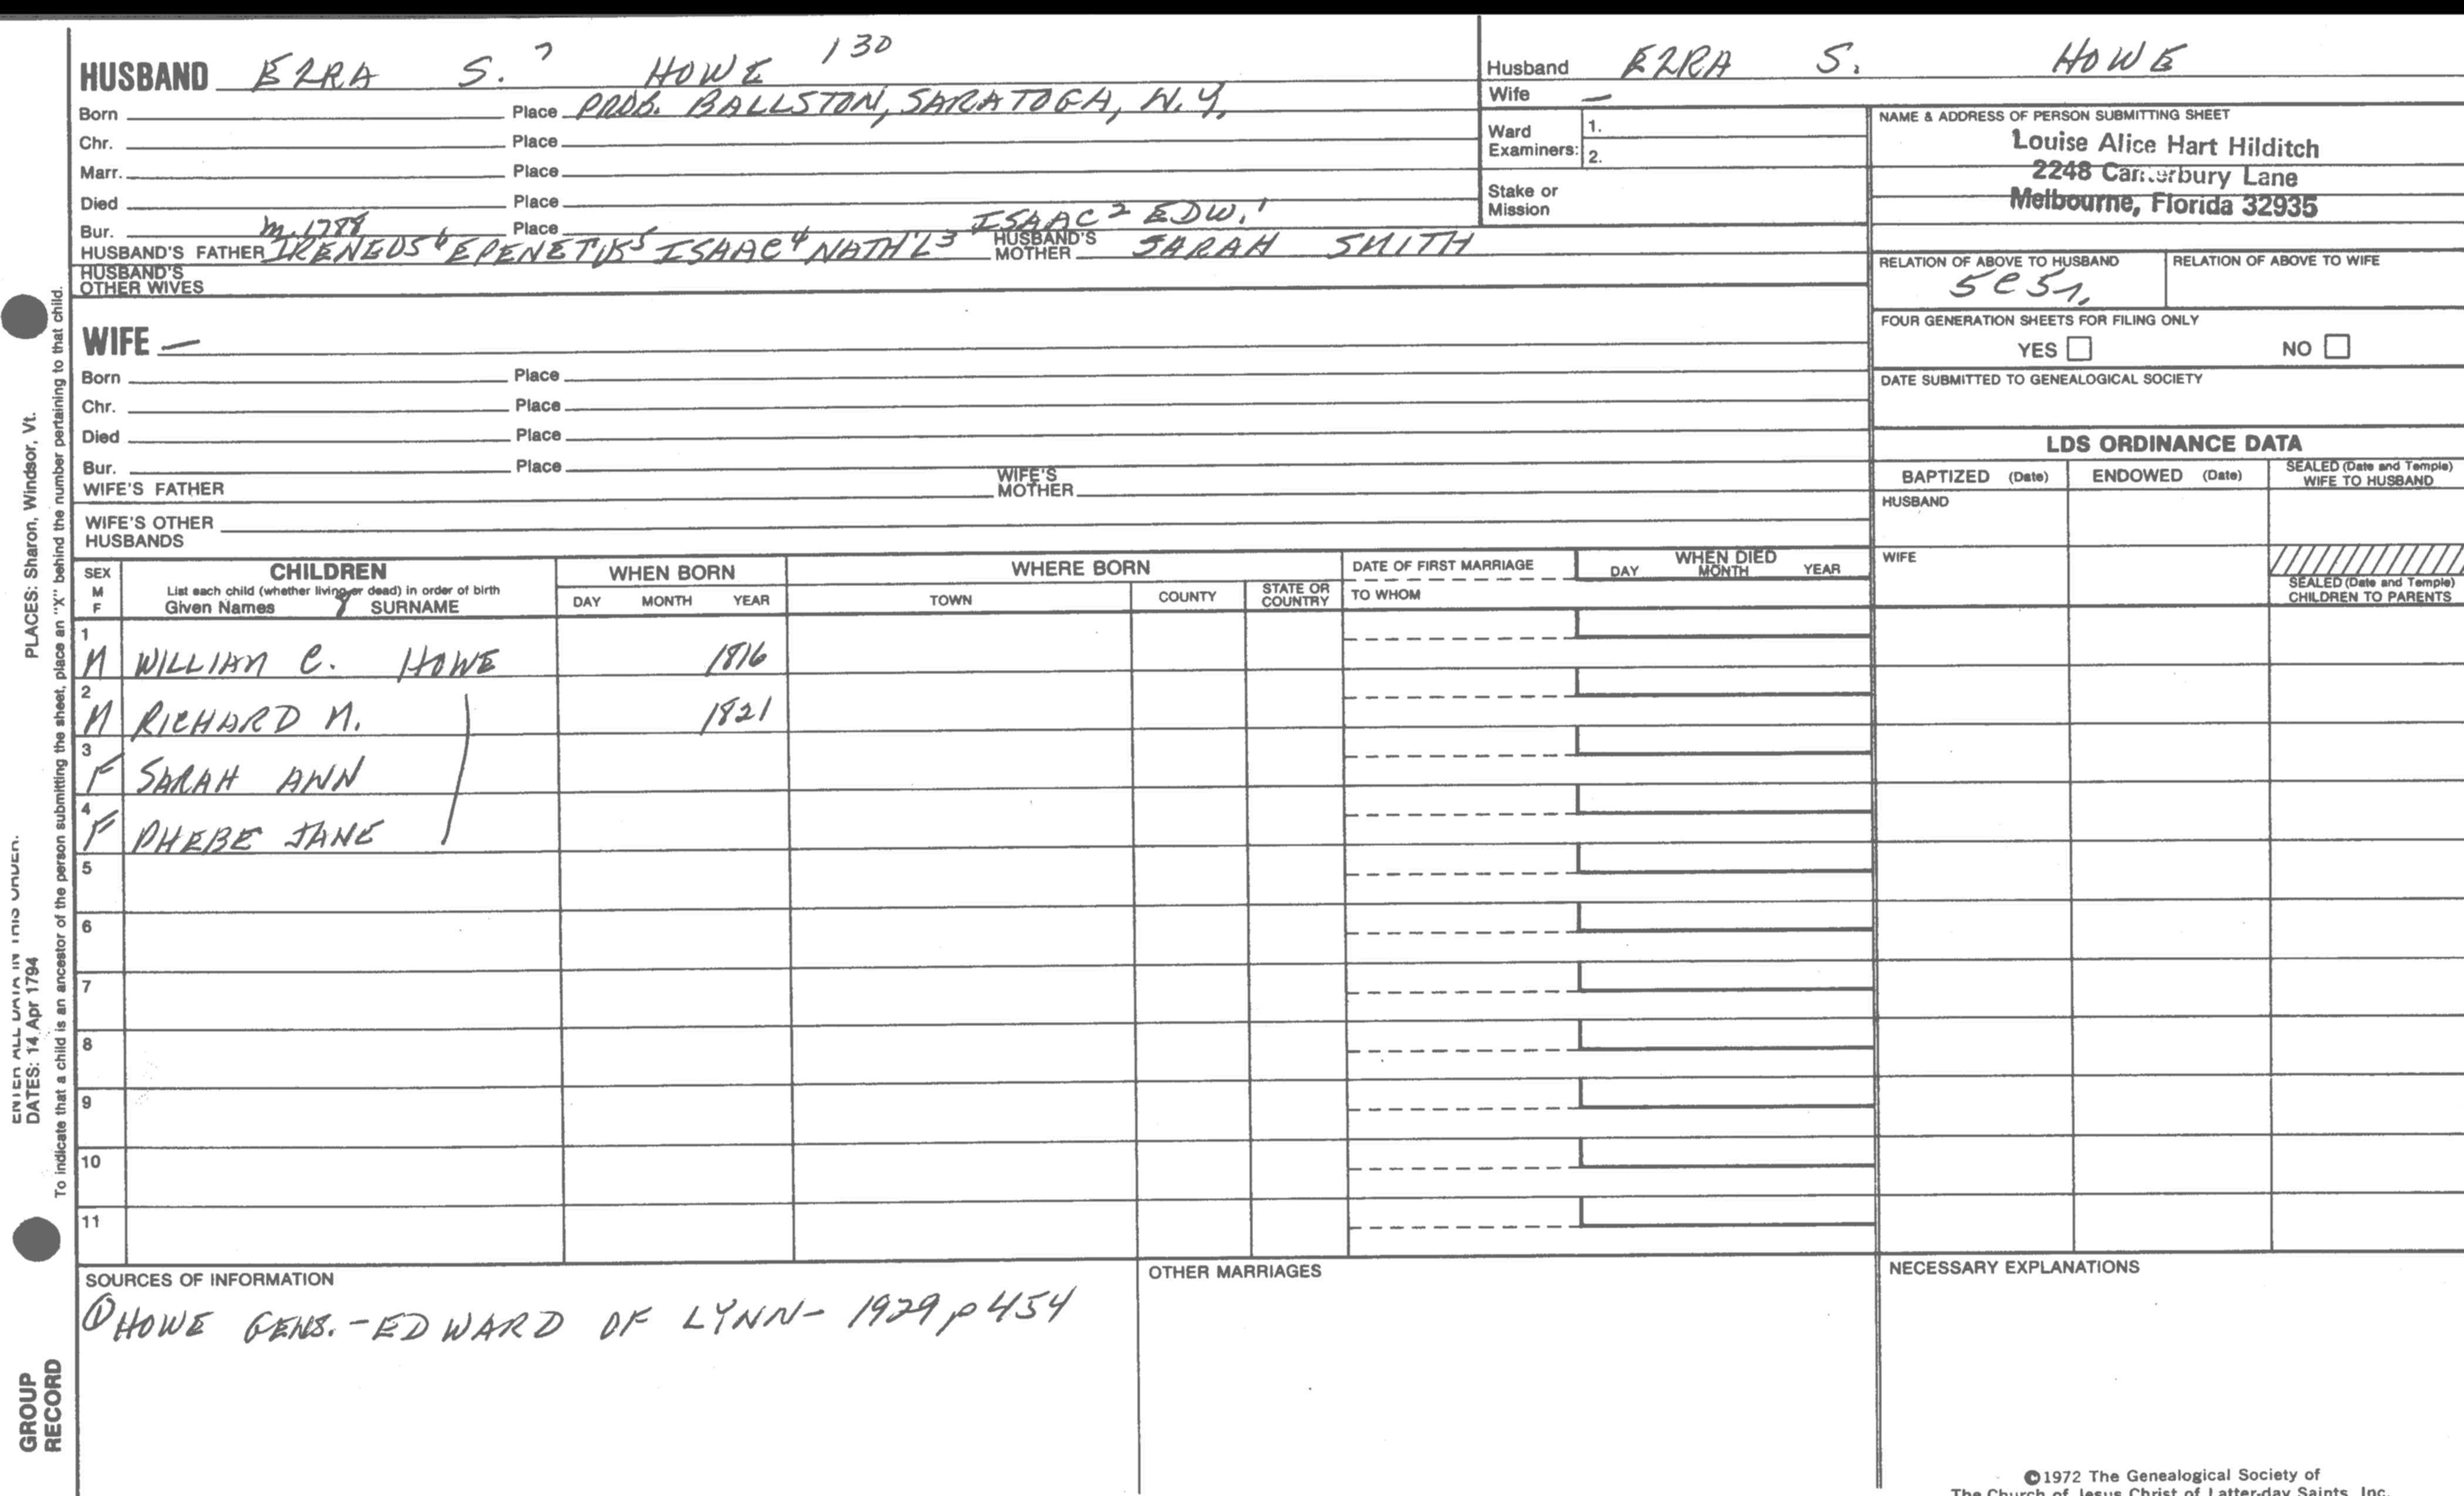 HUSBAND EZRA S.7 HOWE 130
Born Place PROB. BALLSTON, SARATOGA, N.Y.
Chr. Place
Marr. Place
Died Place
Bur. m. 1788 Place ISAAC2 EDW.1
HUSBAND'S FATHER IRENEUS6 EPENETUS5 ISAAC4 NATH'L3 HUSBAND'S MOTHER SARAH SMITH
HUSBAND'S OTHER WIVES
Husband EZRA S. HOWE
Wife —
Ward Examiners: 1. 2.
Stake or Mission
NAME & ADDRESS OF PERSON SUBMITTING SHEET
Louise Alice Hart Hilditch
2248 Canterbury Lane
Melbourne, Florida 32935
RELATION OF ABOVE TO HUSBAND RELATION OF ABOVE TO WIFE
5c5r.
FOUR GENERATION SHEETS FOR FILING ONLY
YES NO
DATE SUBMITTED TO GENEALOGICAL SOCIETY
WIFE —
Born Place
Chr. Place
Died Place
Bur. Place
WIFE'S FATHER WIFE'S MOTHER
WIFE'S OTHER HUSBANDS
LDS ORDINANCE DATA
BAPTIZED (Date) ENDOWED (Date) SEALED (Date and Temple) WIFE TO HUSBAND
HUSBAND
WIFE
SEALED (Date and Temple) CHILDREN TO PARENTS
SEX M F
CHILDREN
List each child (whether living or dead) in order of birth
Given Names SURNAME
WHEN BORN
DAY MONTH YEAR
WHERE BORN
TOWN COUNTY STATE OR COUNTRY
DATE OF FIRST MARRIAGE
TO WHOM
WHEN DIED
DAY MONTH YEAR
1 M WILLIAM C. HOWE 1816
2 M RICHARD M. 1821
3 F SARAH ANN
4 F PHEBE JANE
5
6
7
8
9
10
11
SOURCES OF INFORMATION
① HOWE GENS. - EDWARD OF LYNN - 1929 p 454
OTHER MARRIAGES
NECESSARY EXPLANATIONS
©1972 The Genealogical Society of
The Church of Jesus Christ of Latter-day Saints, Inc.
ENTER ALL DATA IN THIS ORDER:
DATES: 14 Apr 1794 PLACES: Sharon, Windsor, Vt.
To indicate that a child is an ancestor of the person submitting the sheet, place an "X" behind the number pertaining to that child.
GROUP
RECORD